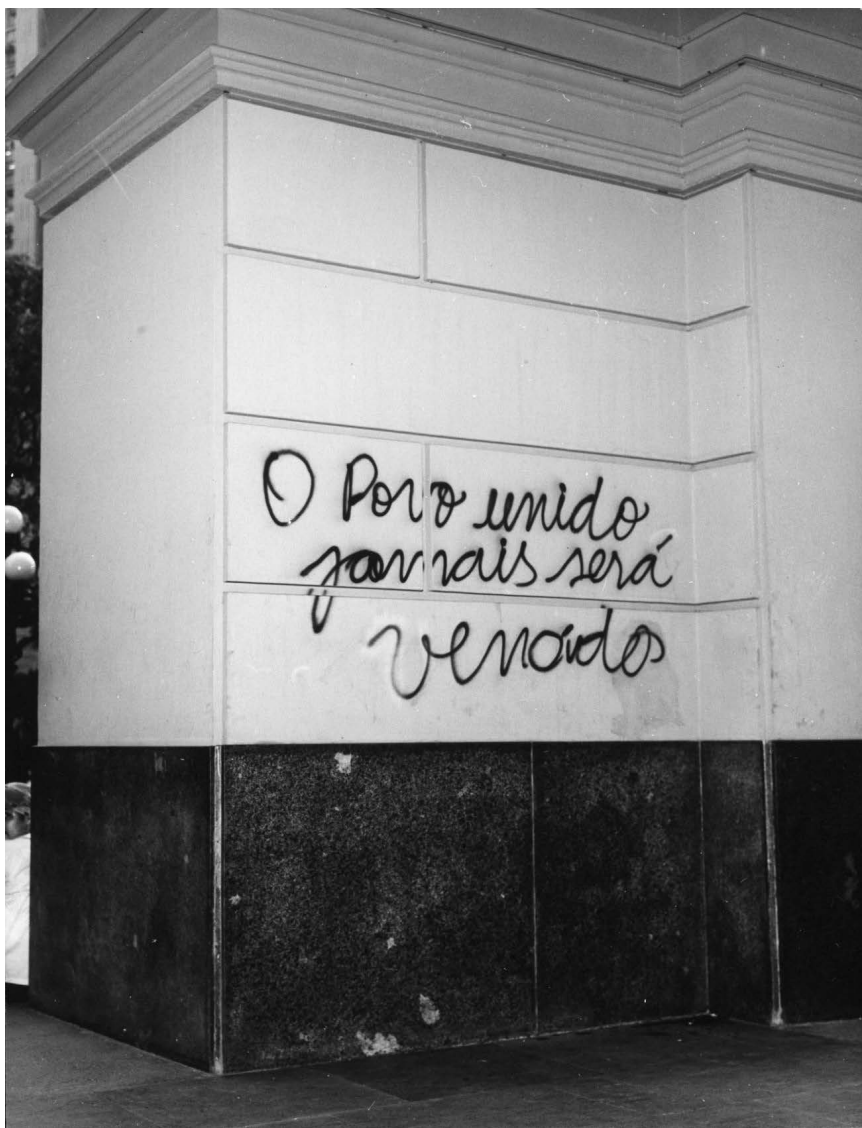 O Povo unido
jamais será
vencidos